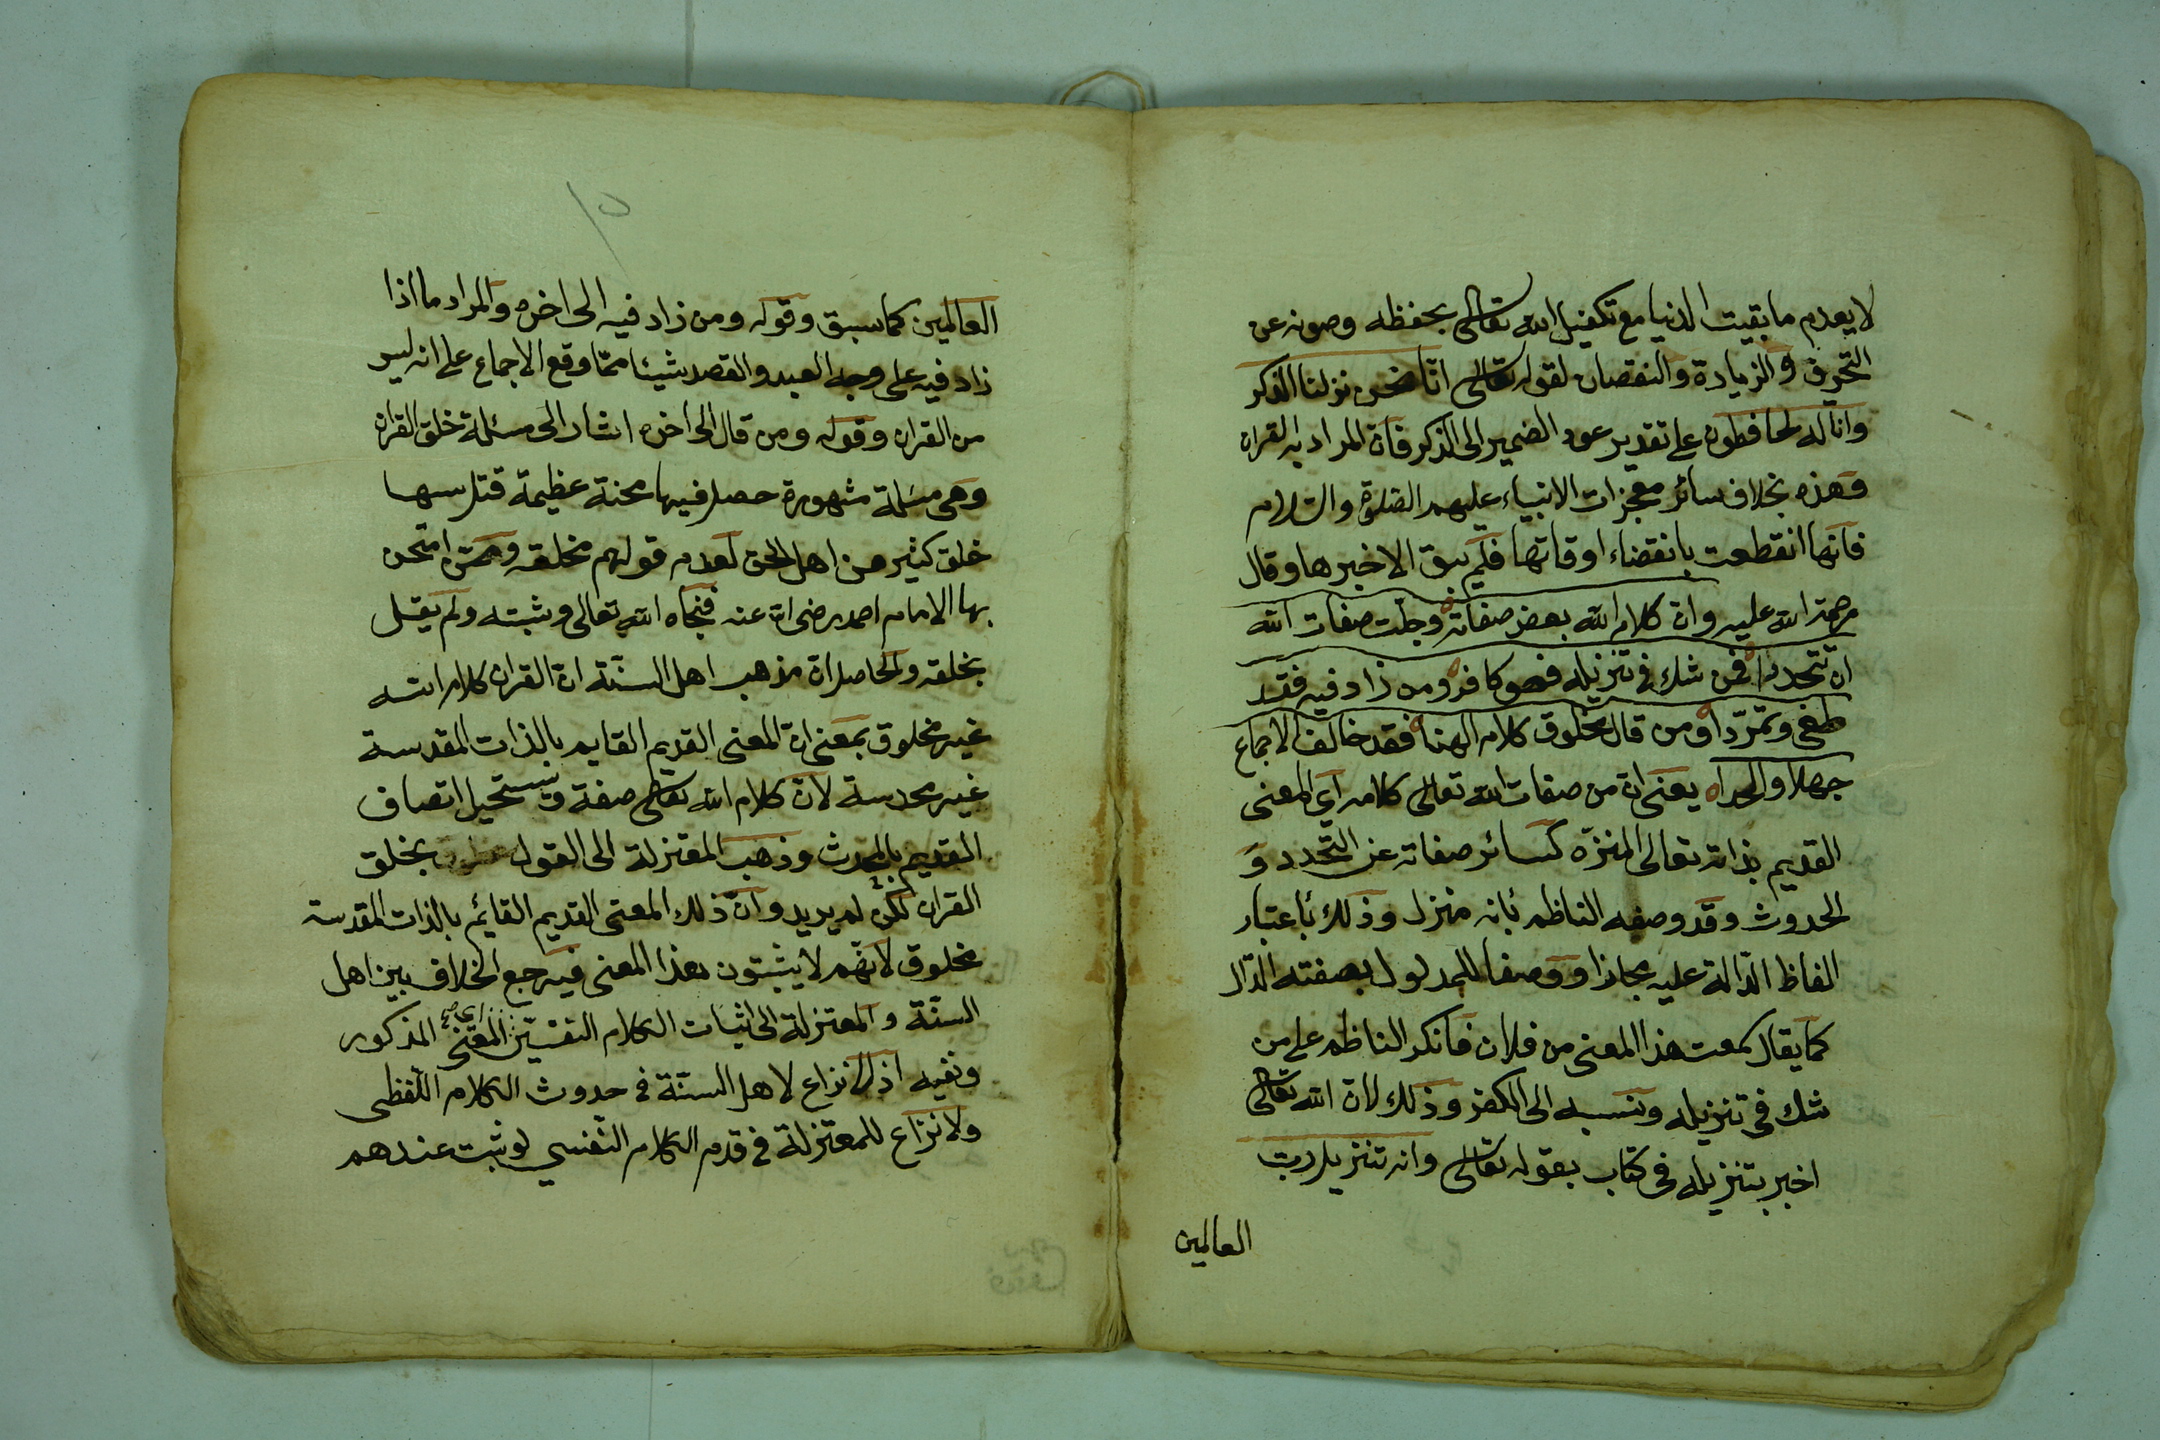 لا يعدم ما بقيت الدنيا مع تكفيل الله تعالى بحفظه وصونه عن
التحريف والزيادة والنقصان لقوله تعالى انا نحن نزلنا الذكر
وانا له لحافظون على تقدير عود الضمير الى الذكر فان المراد به القران
وهذه بخلاف سائر معجزات الانبياء عليهم الصلوة والسلام
فانها انقطعت بانقضاء اوقاتها فلم يبق الا خبرها وقال
رحمة الله عليه وان كلام الله بعض صفاته وجلت صفات الله
ان تتحددا فمن شك في تنزيله فهو كافر ومن زاد فيه فقد
طغى وتمردا ومن قال مخلوق كلام الهنا فقد خالف الاجماع
جهلا والحدا يعنى ان من صفات الله تعالى كلامه اي المعنى
القديم بذاته تعالى المنزه كسائر صفاته عن التجدد و
الحدوث وقد وصفه الناظم بانه منزل وذلك باعتبار
الفاظ الدالة عليه مجازا ووصفا للمدلول بصفته الدال
كما يقال سمعت هذا المعنى من فلان فانكر الناظم على من
شك في تنزيله ونسبه الى الكفر وذلك لان الله تعالى
اخبر بتنزيله في كتاب بقوله تعالى وانه تنزيل رب
العالمين
١٥
العالمين كما سبق وقوله ومن زاد فيه الى اخره والمراد ما اذا
زاد فيه على وجه العمد والقصد شيئا مما وقع الاجماع على انه ليس
من القران وقوله ومن قال الى اخره اشار الى مسئلة خلق القران
وهي مسئلة مشهورة حصل فيها محنة عظيمة قتل بسببها
خلق كثير من اهل الحق لعدم قولهم بخلقه وممن امتحن
بها الامام احمد رضى الله عنه فنجاه الله تعالى وثبته ولم يقل
بخلقه والحاصل ان مذهب اهل السنة ان القران كلام الله
غير مخلوق بمعنى ان المعنى القديم القايم بالذات المقدسة
غير محدسة لان كلام الله تعالى صفة ويستحيل اتصاف
القديم بالمحدث وذهب المعتزلة الى القول بخلق
القران لكن لم يريدوا ان ذلك المعنى القديم القائم بالذات المقدسة
مخلوق لانهم لا يثبتون هذا المعنى فيرجع الخلاف بين اهل
السنة والمعتزلة الى اثبات الكلام النفسي اي المعنى المذكور
ونفيه اذ لا نزاع لاهل السنة في حدوث الكلام اللفظى
ولا نزاع للمعتزلة في قدم الكلام النفسي لو ثبت عندهم